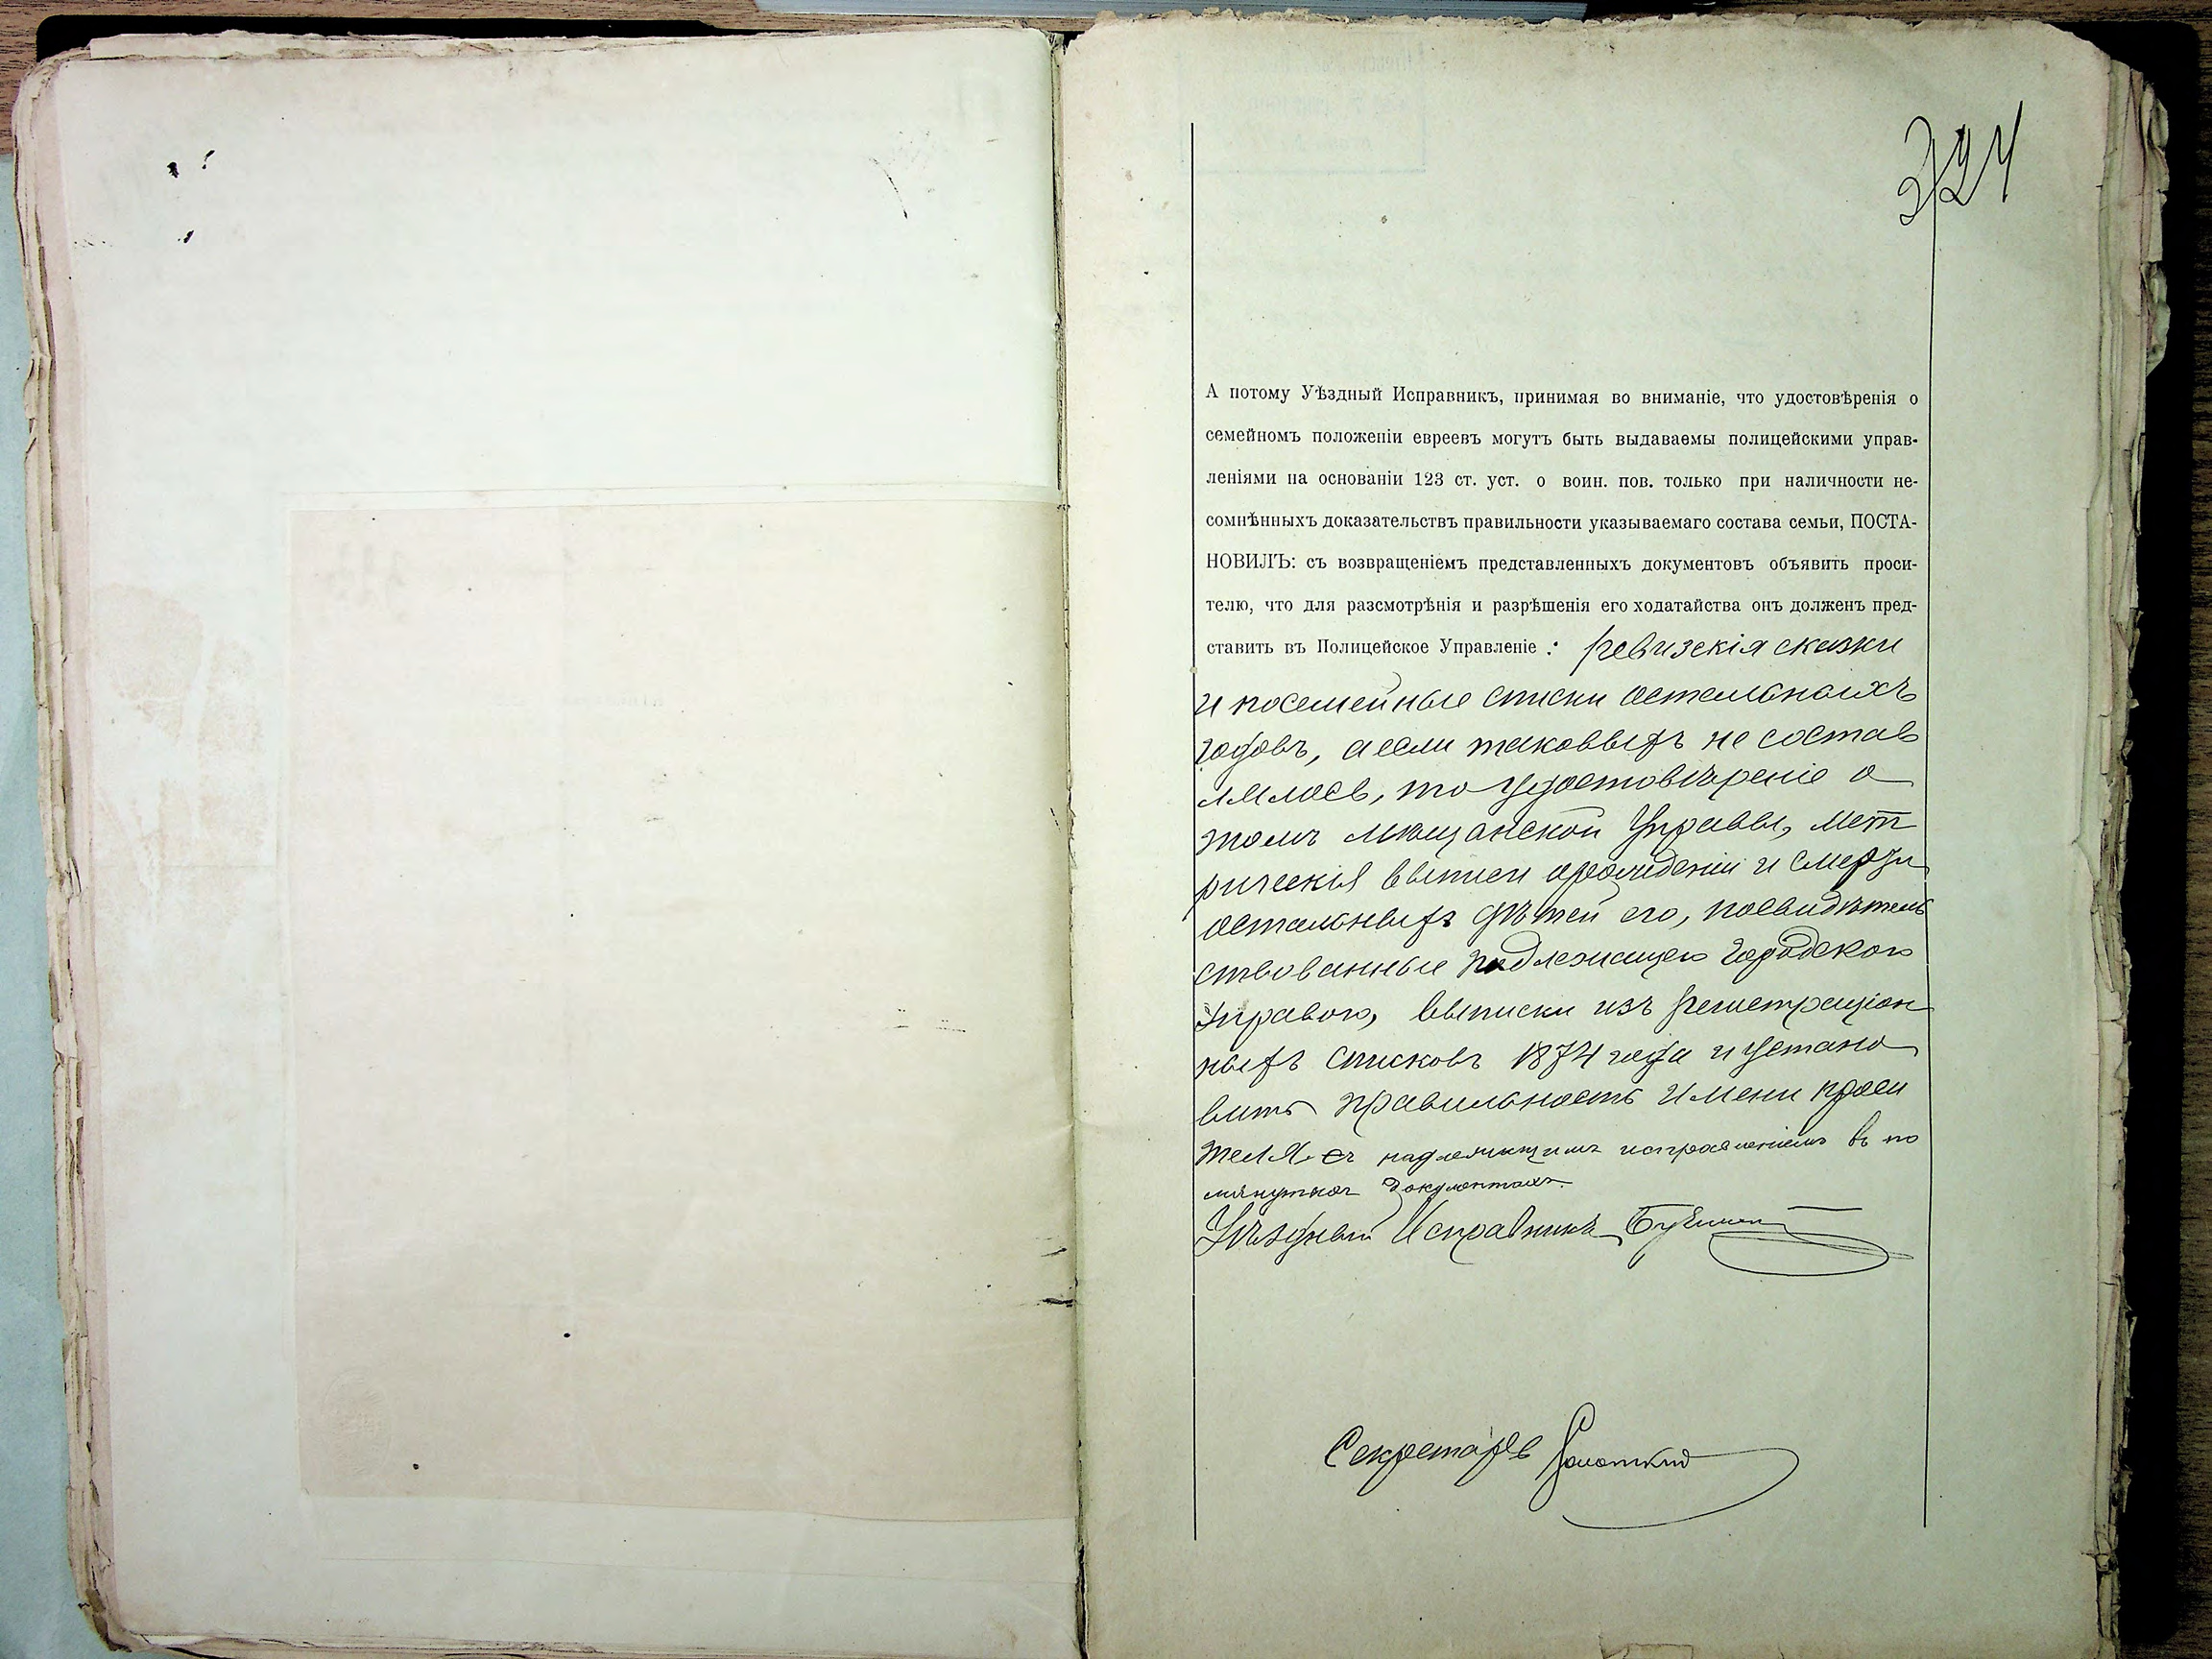 324
А потому Уѣздный Исправникъ, принимая во вниманіе, что удостовѣренія о
семейномъ положеніи евреевъ могутъ быть выдаваемы полицейскими управ-
леніями на основаніи 123 ст. уст. о воин. пов. только при наличности не-
сомнѣнныхъ доказательствъ правильности указываемаго состава семьи, ПОСТА-
НОВИЛЪ: съ возвращеніемъ представленныхъ документовъ объявить проси-
телю, что для разсмотрѣнія и разрѣшенія его ходатайства онъ долженъ пред-
ставить въ Полицейское Управленіе: ревизскія сказки
и посемейные списки остальныхъ
годовъ, а если таковыхъ не состав
лялось, то удостовѣреніе о
томъ мѣщанской Управы, мет
рическія выписи о рожденіи и смерти
остальныхъ дѣтей его, посвидѣтель
ствованные подлежащею Городскою
Управою, выписки изъ регистраціон
ныхъ списковъ 1874 года и устано
вить правильность имени проси
теля съ надлежащимъ исправленіемъ въ по
мянутыхъ документахъ.
Уѣздный Исправникъ
Секретарь